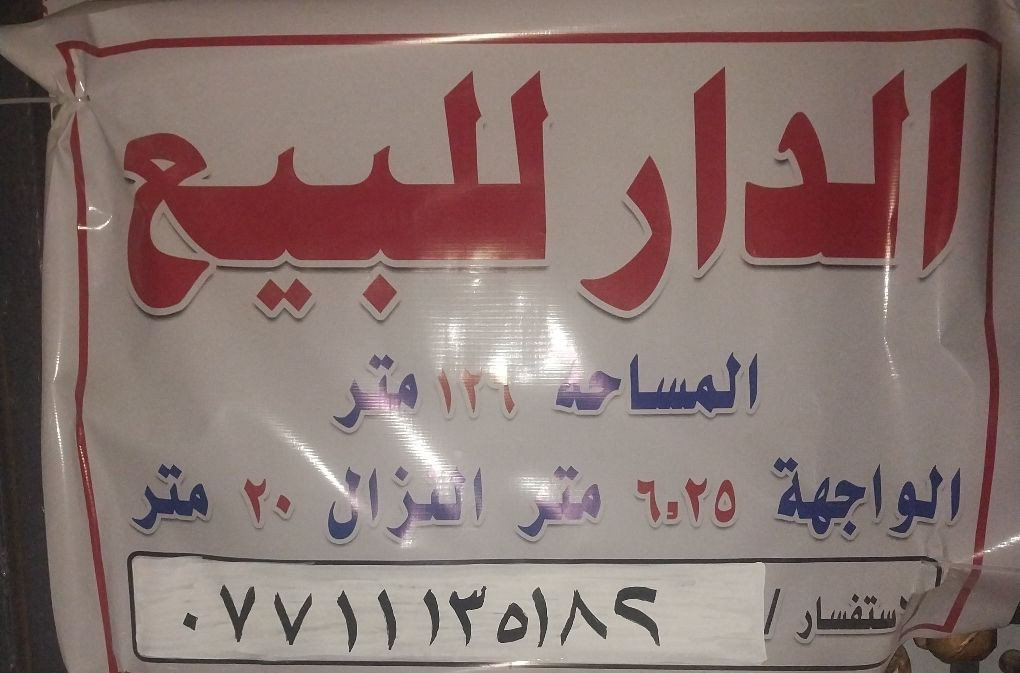 الدار للبيع
المساحة ١٢٦ متر
الواجهة 6,25 متر النزال ٢٠ متر
استفسار / ٠٧٧١١١٣٥١٨٢